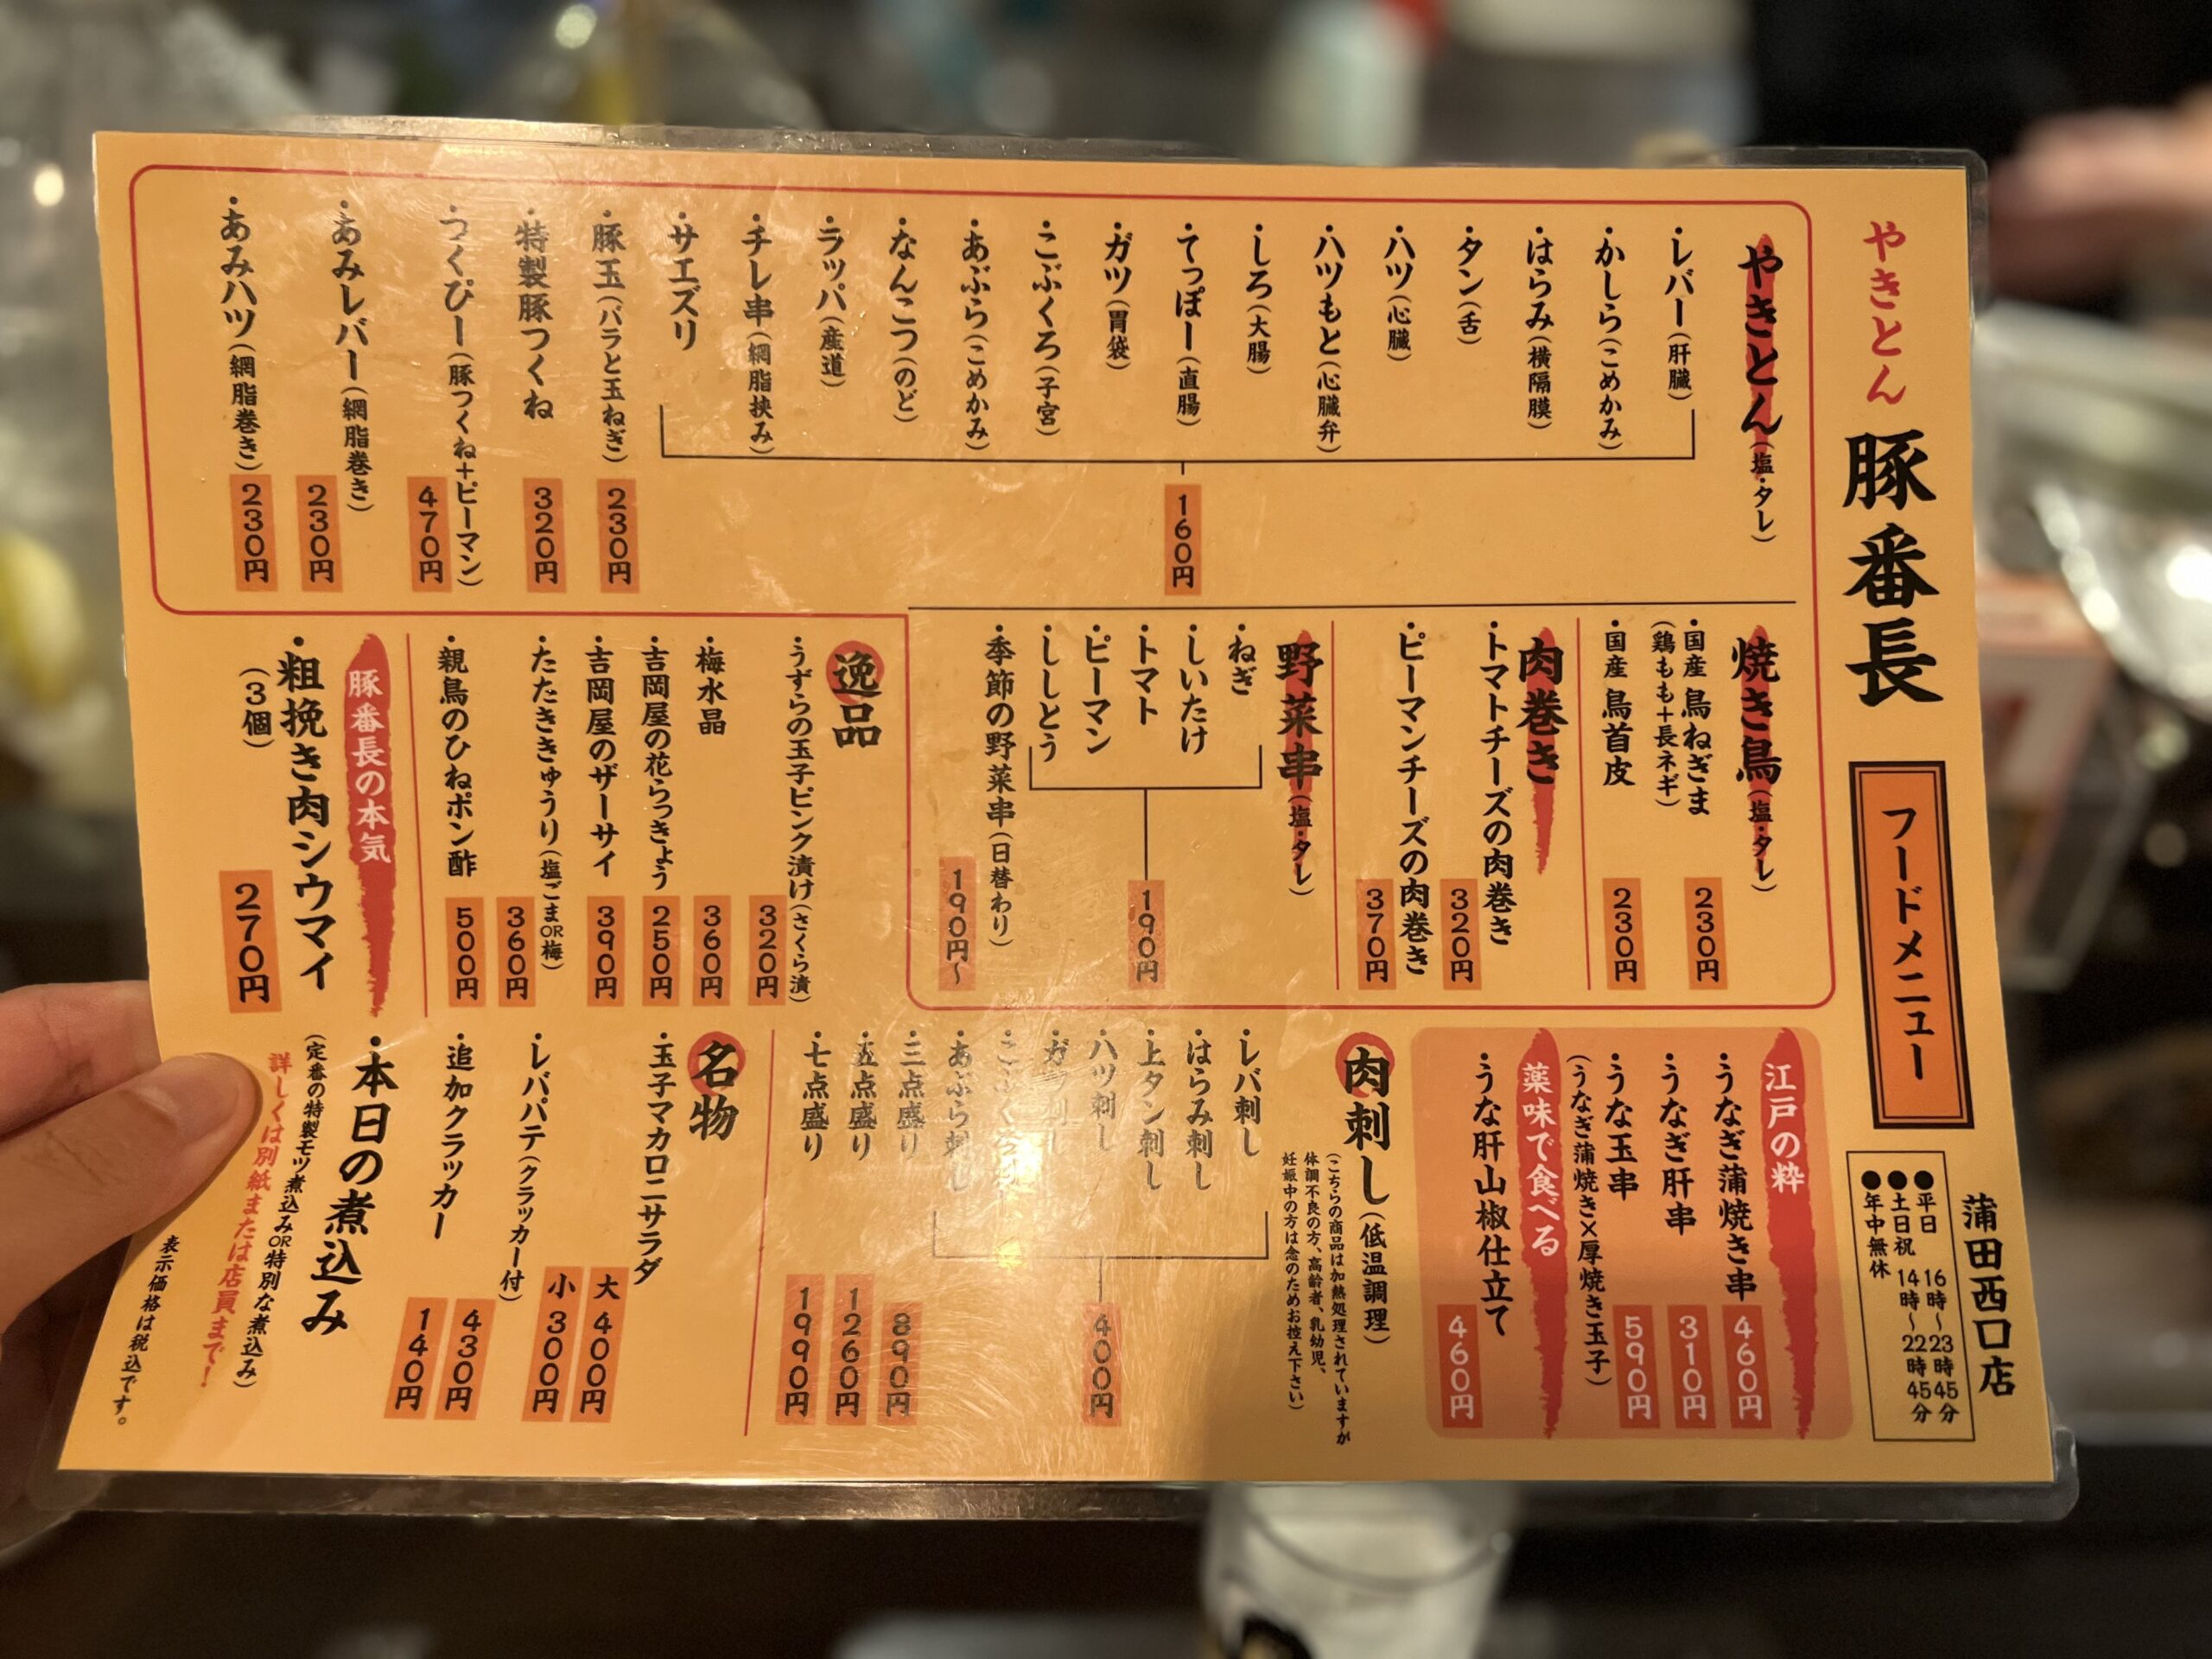 やきとん 豚番長
フードメニュー
蒲田西口店
●平日 16時〜23時45分
●土日祝 14時〜22時45分
●年中無休
やきとん(塩・タレ)
・レバー(肝臓)
・かしら(こめかみ)
・はらみ(横隔膜)
・タン(舌)
・ハツ(心臓)
・ハツもと(心臓弁)
・しろ(大腸)
・てっぽー(直腸)
・ガツ(胃袋)
・こぶくろ(子宮)
・あぶら(こめかみ)
・なんこつ(のど)
・ラッパ(産道)
・チレ串(網脂挟み)
・サエズリ
160円
・豚玉(バラと玉ねぎ) 230円
・特製豚つくね 320円
・つくぴー(豚つくね+ピーマン) 470円
・あみレバー(網脂巻き) 230円
・あみハツ(網脂巻き) 230円
焼き鳥(塩・タレ)
・国産 鳥ねぎま 230円
(鶏もも+長ネギ)
・国産 鳥首皮 230円
肉巻き
・トマトチーズの肉巻き 320円
・ピーマンチーズの肉巻き 370円
野菜串(塩・タレ)
・ねぎ
・しいたけ
・トマト
・ピーマン
・ししとう
190円
・季節の野菜串(日替わり) 190円〜
逸品
・うずらの玉子ピンク漬け(さくら漬) 320円
・梅水晶 360円
・吉岡屋の花らっきょう 250円
・吉岡屋のザーサイ 390円
・たたききゅうり(塩ごまOR梅) 360円
・親鳥のひねポン酢 500円
豚番長の本気
・粗挽き肉シウマイ
(3個) 270円
江戸の粋
・うなぎ蒲焼き串 460円
・うなぎ肝串 310円
・うな玉串 590円
(うなぎ蒲焼き×厚焼き玉子)
薬味で食べる
・うな肝山椒仕立て 460円
肉刺し(低温調理)
(こちらの商品は加熱処理されていますが
体調不良の方、高齢者、乳幼児、
妊娠中の方は念のためお控え下さい)
・レバ刺し
・はらみ刺し
・上タン刺し
・ハツ刺し
・ガツ刺し
・あぶら刺し
400円
・三点盛り 890円
・五点盛り 1260円
・七点盛り 1990円
名物
・玉子マカロニサラダ
大 400円
小 300円
・レバパテ(クラッカー付) 430円
・追加クラッカー 140円
・本日の煮込み
(定番の特製モツ煮込みOR特別な煮込み)
詳しくは別紙または店員まで!
表示価格は税込です。